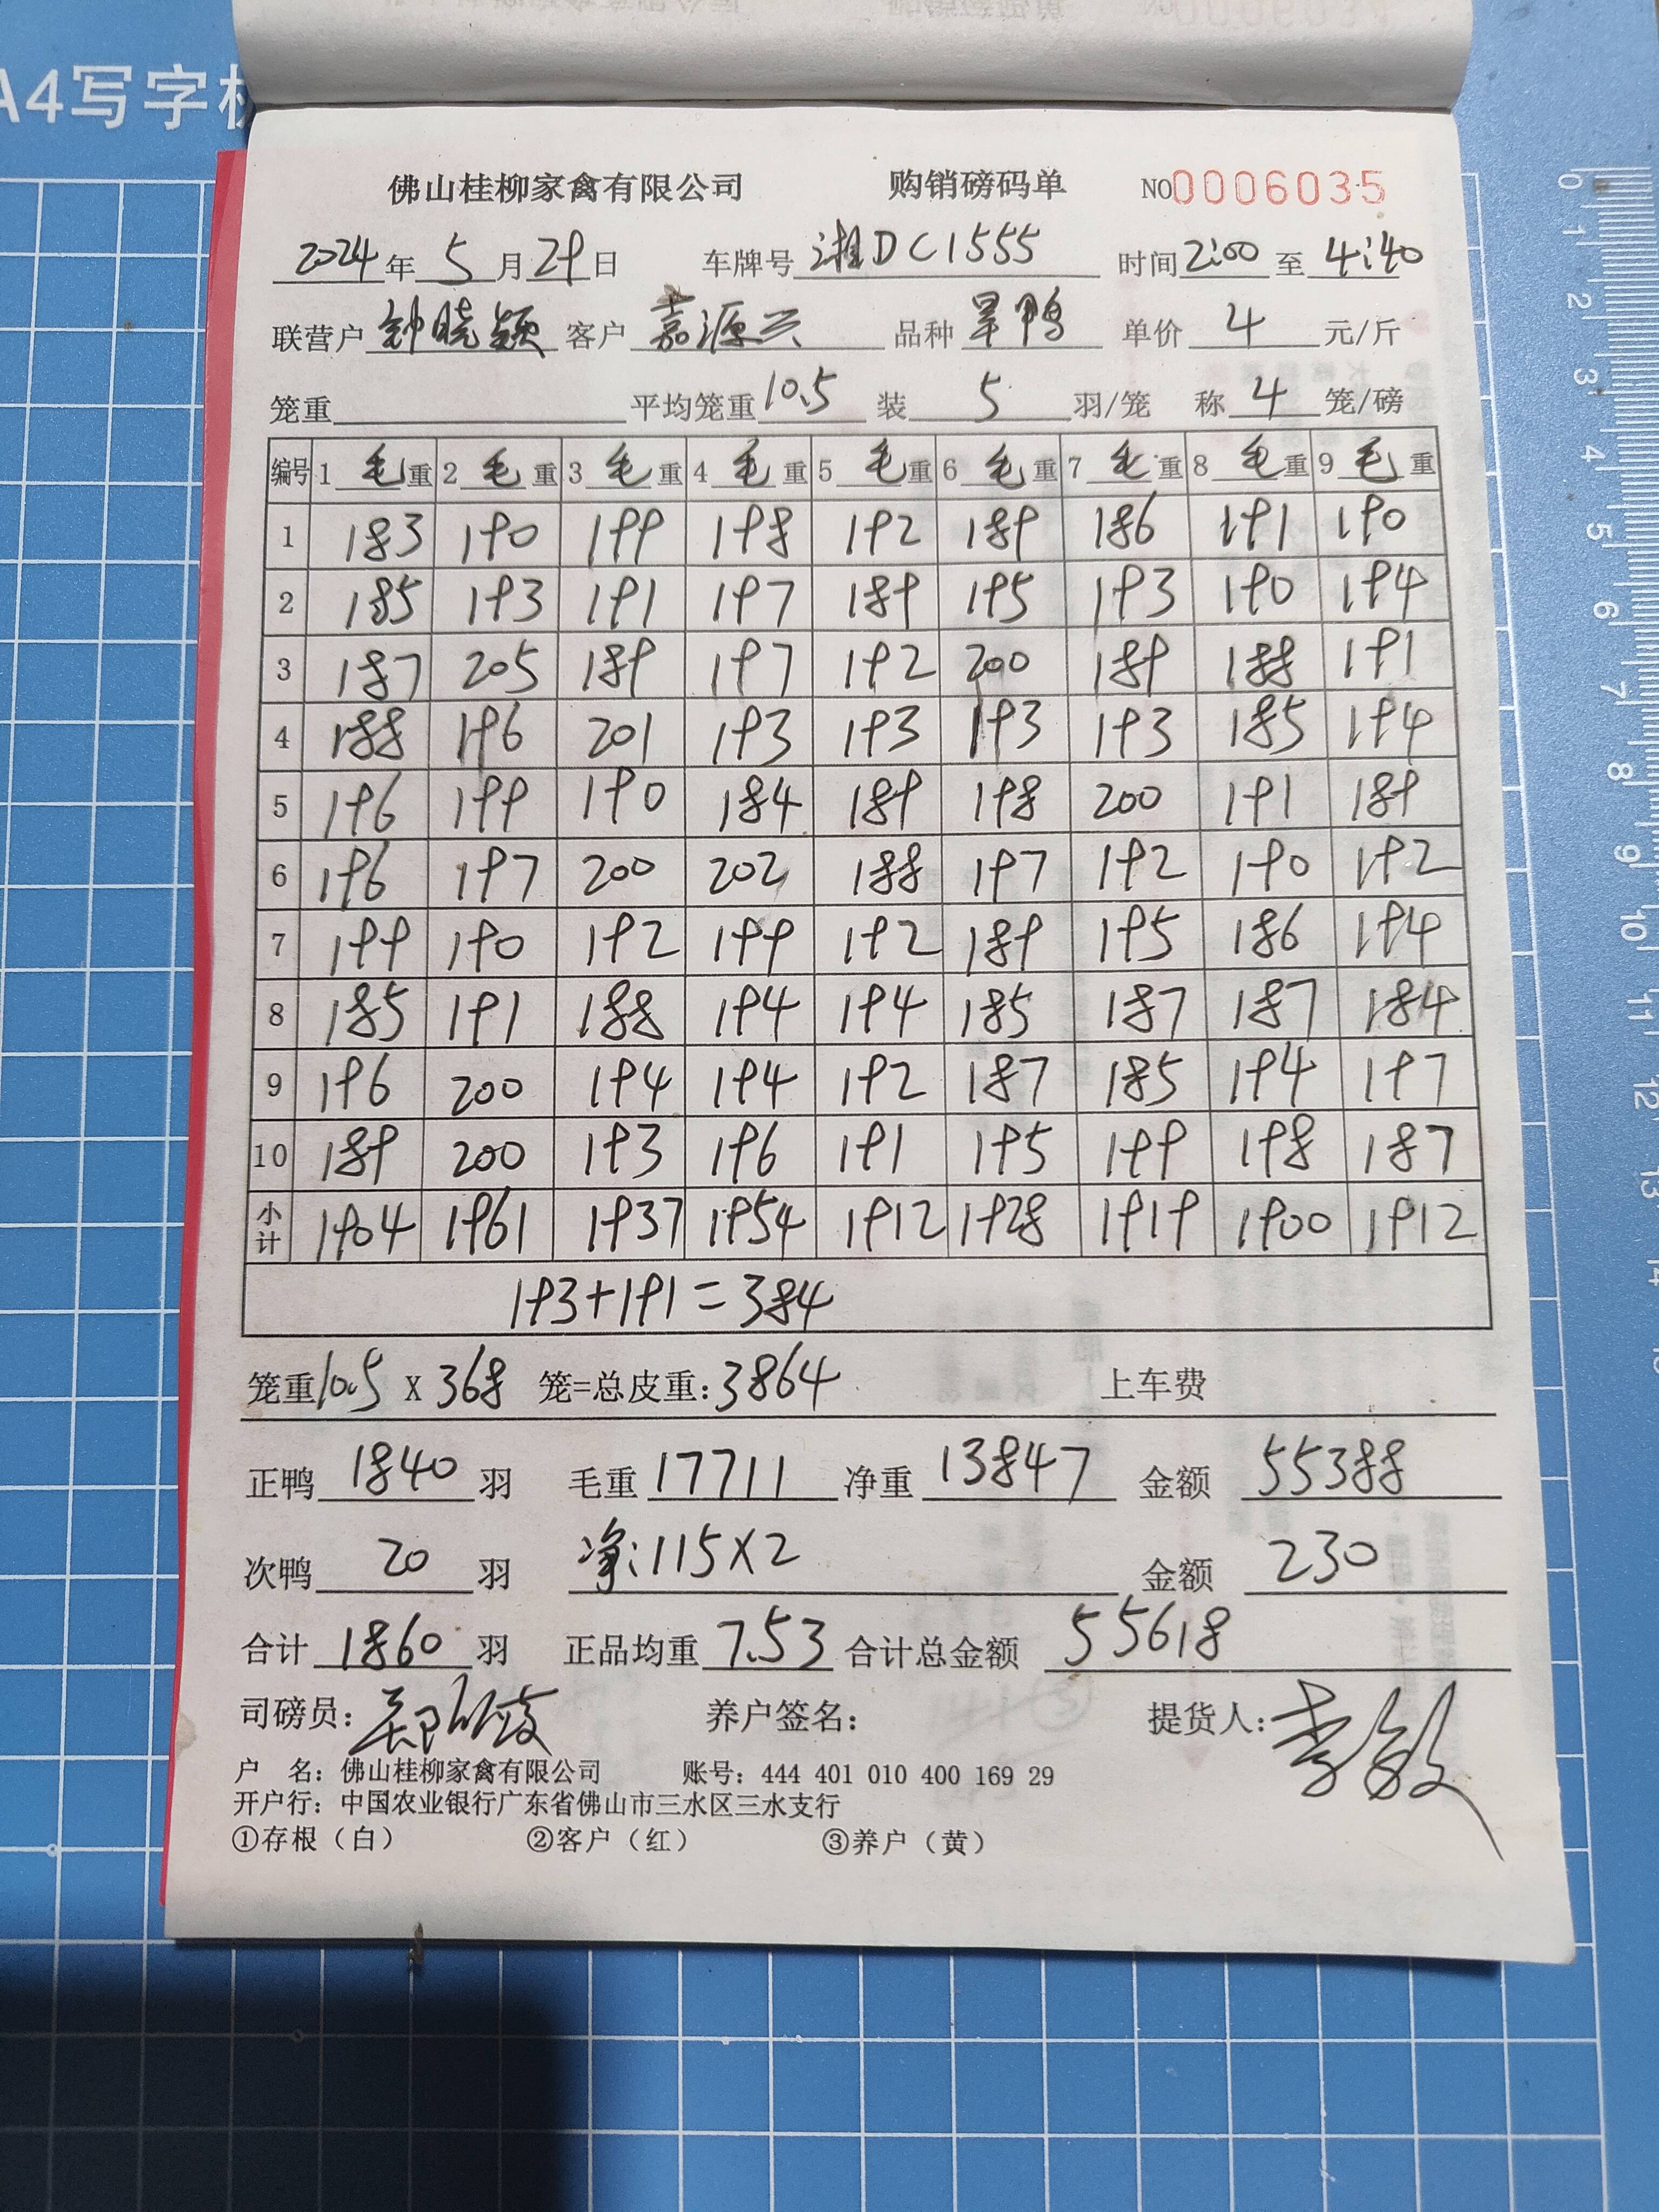 A4写字
佛山桂柳家禽有限公司 购销磅码单 NO0006035
2024年 5 月 29日 车牌号 湘DC1555 时间 2:00 至 4:40
联营户 钟晓颖 客户 嘉源兴 品种 旱鸭 单价 4 元/斤
笼重 平均笼重 10.5 装 5 羽/笼 称 4 笼/磅
编号 1 毛重 2 毛重 3 毛重 4 毛重 5 毛重 6 毛重 7 毛重 8 毛重 9 毛重
1 183 190 199 198 192 189 186 191 190
2 185 193 191 197 189 195 193 190 194
3 187 205 189 197 192 200 189 188 191
4 188 196 201 193 193 193 193 185 194
5 196 199 190 184 189 198 200 191 189
6 196 197 200 202 188 197 192 190 192
7 199 190 192 199 192 189 195 186 194
8 185 191 188 194 194 185 187 187 184
9 196 200 194 194 192 187 185 194 197
10 189 200 193 196 191 195 199 198 187
小计 1904 1961 1937 1954 1912 1928 1919 1900 1912
193+191=384
笼重10.5 X 368 笼=总皮重:3864 上车费
正鸭 1840 羽 毛重 17711 净重 13847 金额 55388
次鸭 20 羽 净:115X2 金额 230
合计 1860 羽 正品均重 7.53 合计总金额 55618
司磅员: 养户签名: 提货人:李敏
户 名: 佛山桂柳家禽有限公司 账号: 444 401 010 400 169 29
开户行: 中国农业银行广东省佛山市三水区三水支行
①存根（白） ②客户（红） ③养户（黄）
0 1 2 3 4 5 6 7 8 9 10 11 12 13 14